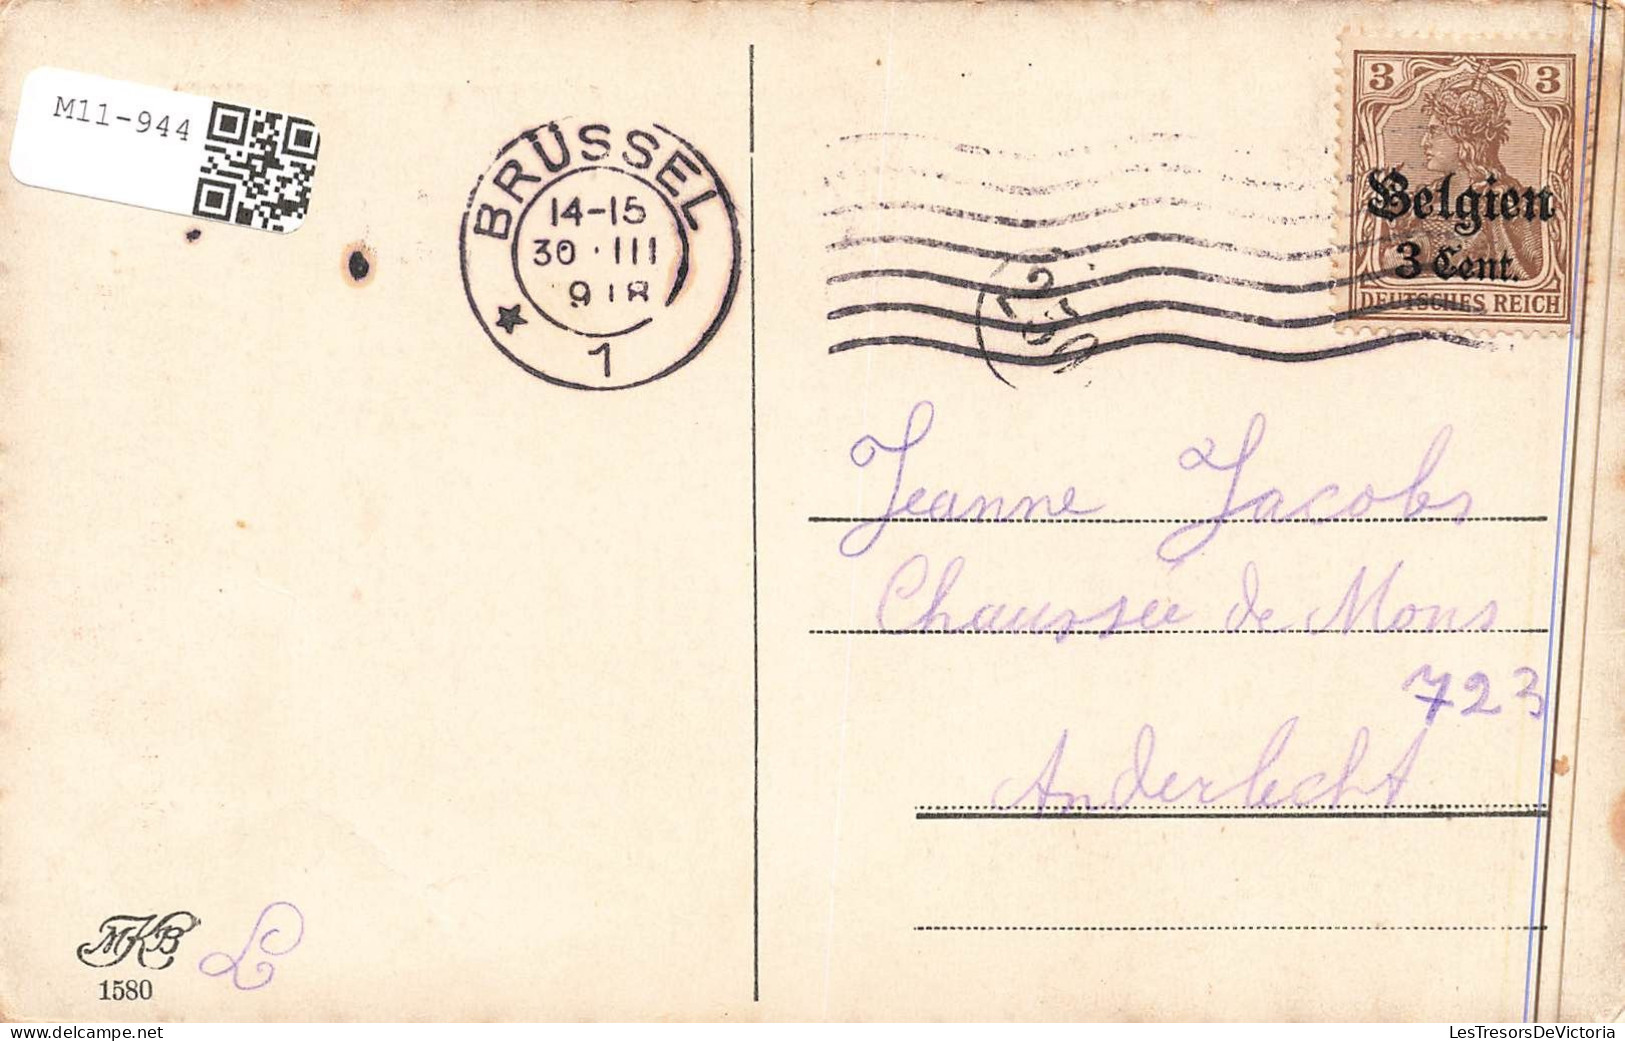 M11-944
BRÜSSEL
14-15
30 · III
918
1
3 3
Belgien
3 Cent.
DEUTSCHES REICH
Jeanne Jacobs
Chaussée de Mons
723
Anderlecht
MKB
1580
L
www.delcampe.net
LesTresorsDeVictoria